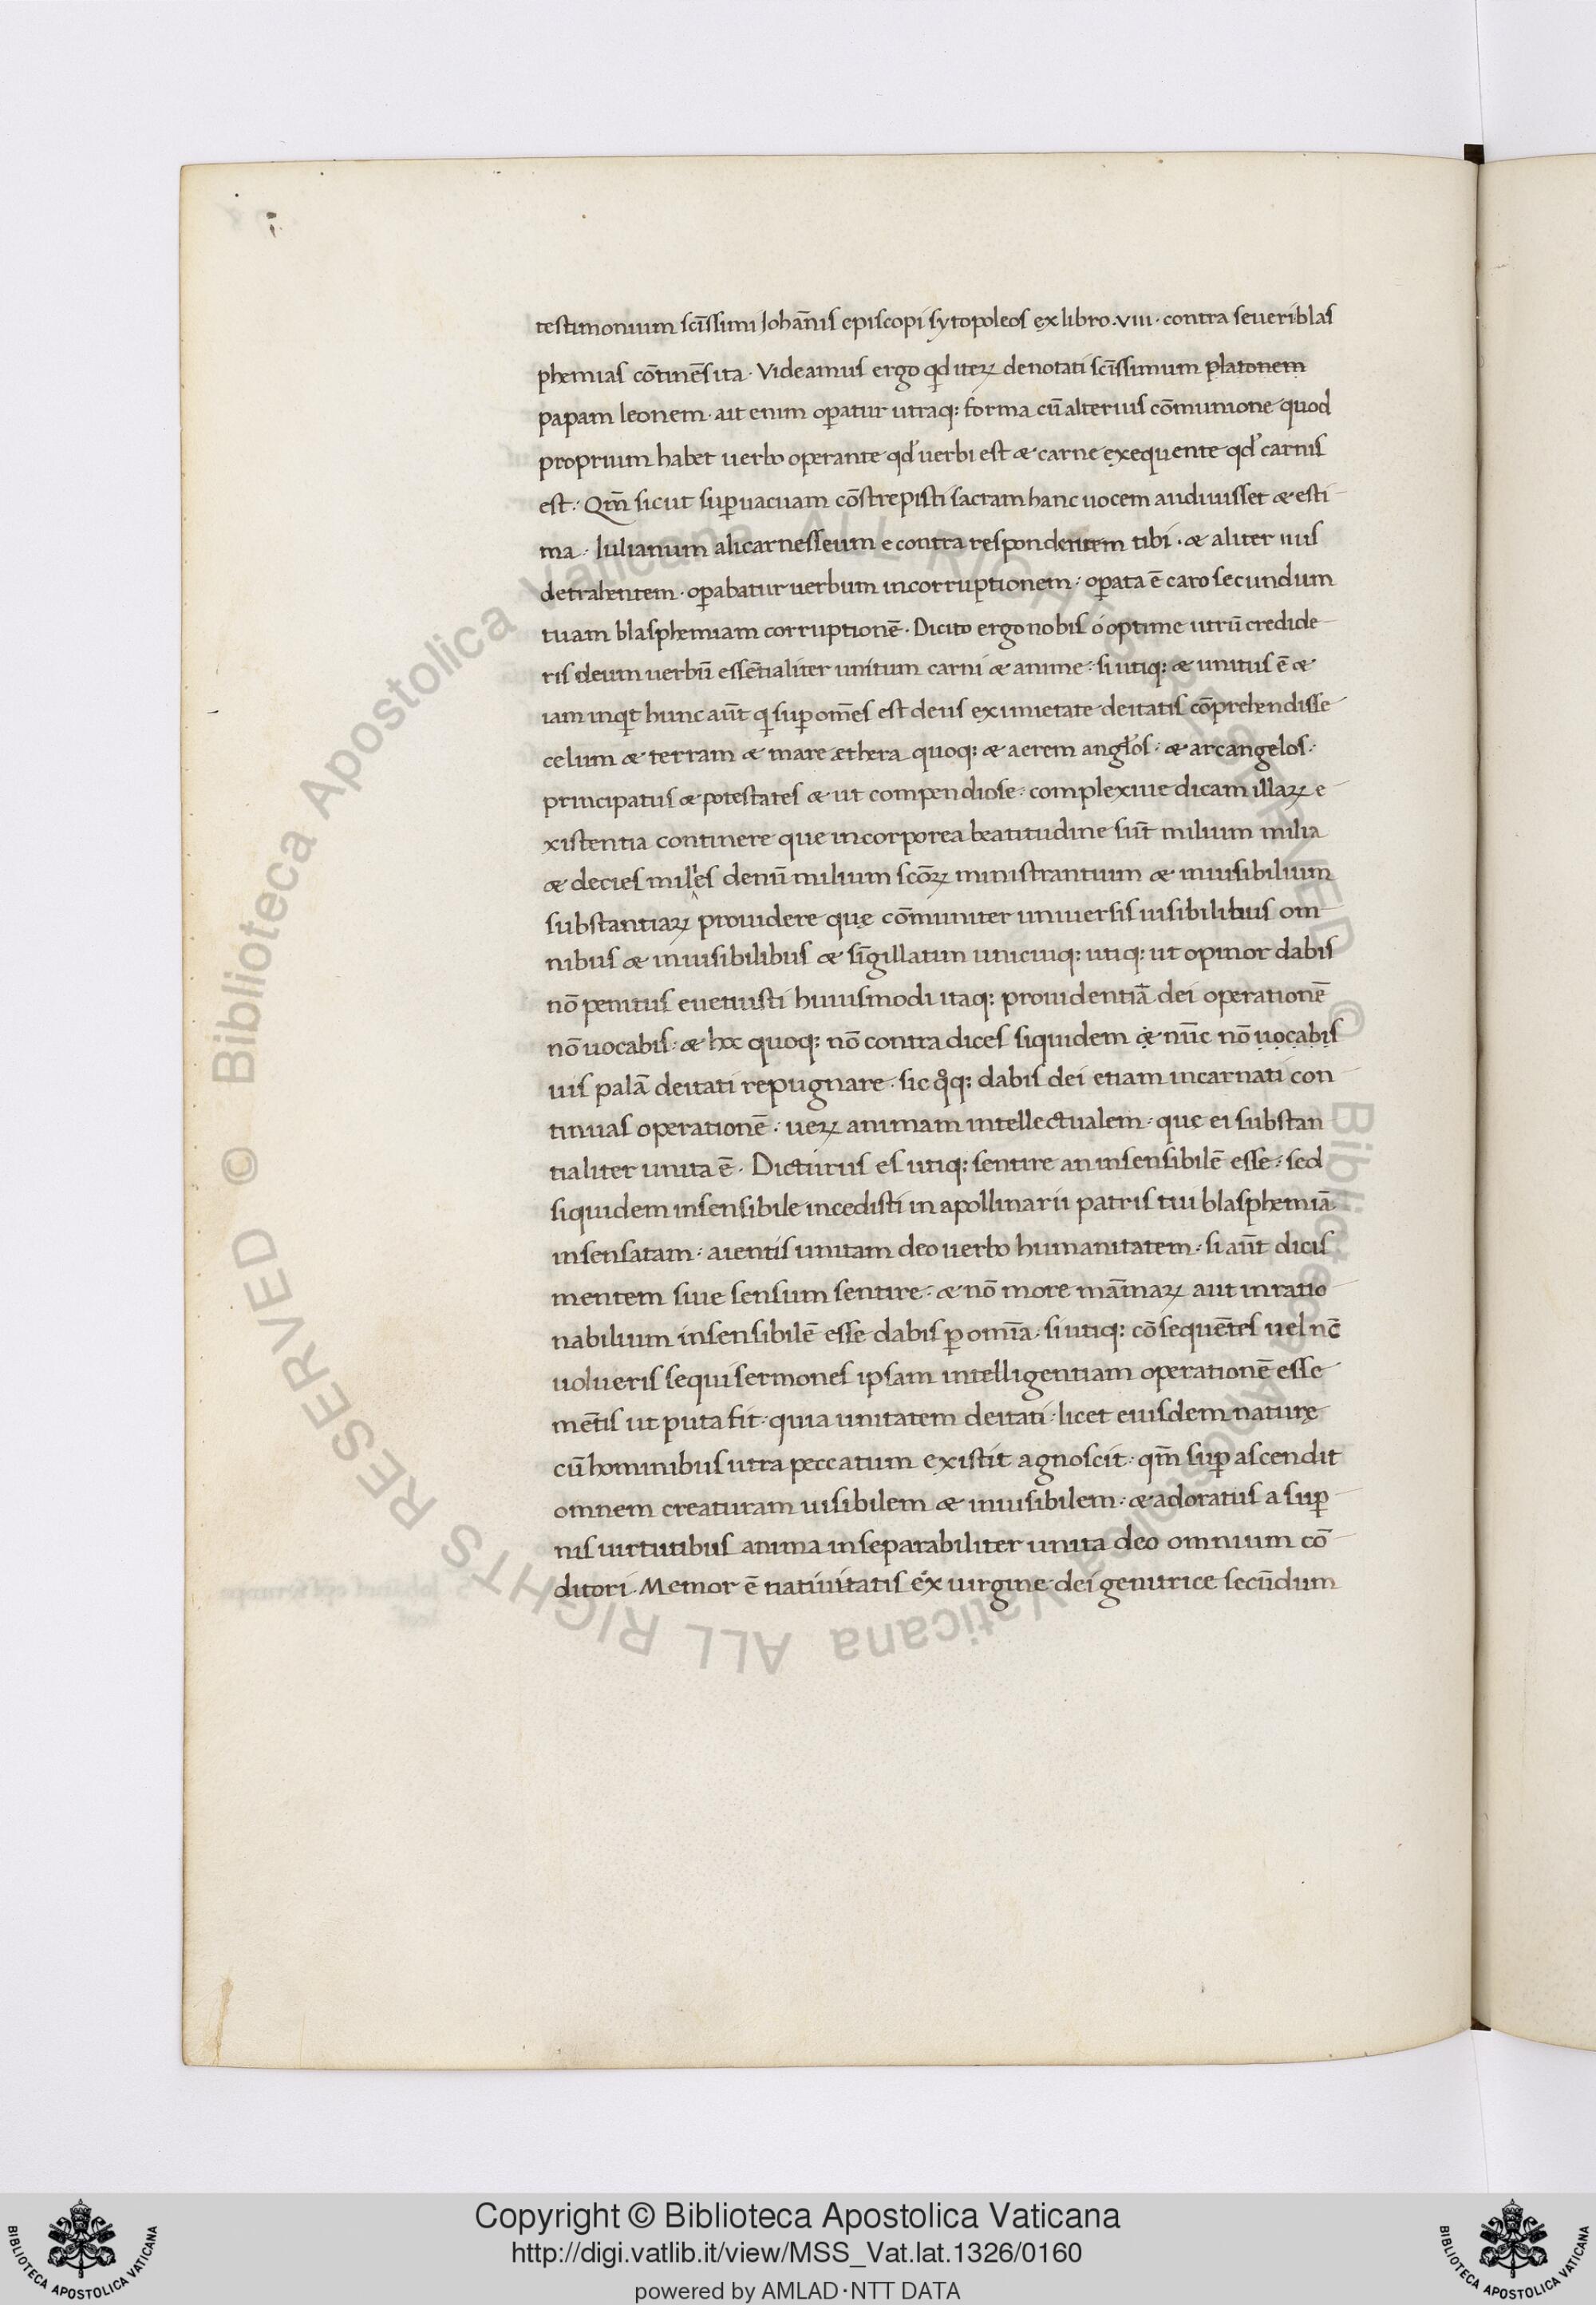 testimonium scīssimi Johāñis episcopi sytopoleos ex libro .VIII. contra seueri blas
phemias cōtinēs ita. Videamus ergo qd iteꝝ denotati scīssimum platonem
papam leonem. ait enim oꝑatur utraq: forma cū alterius cōmunione quod
proprium habet uerbo operante qd uerbi est æ carne exequente qd carnis
est. Qm̄ sicut suꝑuacuam cōstrepisti sacram hanc uocem audiuisset æ esti
ma. Iulianum alicarnesseum e contra respondentem tibi. æ aliter uis
detrahentem. oꝑabatur uerbum incorruptionem. oꝑata ē caro secundum
tuam blasphemiam corruptionē. Dicito ergo nobis o optime utrū credide
ris deum uerbū essētialiter unitum carni æ anime. si utiq: æ unitus ē æ
iam inqt hunc aūt q suꝑ om̄es est deus eximietate deitatis cōprehendisse
celum æ terram æ mare æthera quoq: æ aerem angłos. æ arcangelos.
principatus æ potestates æ ut compendiose. complexiue dicam illaꝝ e
xistentia continere que incorporea beatitudine sūt milium milia
æ decies mili'es denū milium scōꝝ ministrantium æ inuisibilium
substantiaꝝ prouidere quę cōmuniter uniuersis uisibilibus om
nibus æ inuisibilibus æ sīgillatim unicuiq: utiq: ut opinor dabis
nō penitus euetiusti huiusmodi itaq: prouidentiā dei operationē
nō uocabis. æ hoc quoq: nō contra dices siquidem æ nūc nō uocabis
uis palā deitati repugnare. sic qͦq: dabis dei etiam incarnati con
tinuas operationē. ueꝝ animam intellectualem. quę ei substan
tialiter unita ē. Dicturus es utiq: sentire an insensibilē esse. sed
siquidem insensibile incedisti in apollinarii patris tui blasphemiā
insensatam. aientis unitam deo uerbo humanitatem. si aūt dicis
mentem siue sensum sentire. æ nō more mām̄aꝝ aut inratio
nabilium insensibilē esse dabis ꝑ om̄ia. si utiq: cōsequētes uel nc̄
uolueris sequi sermones ipsam intelligentiam operationē esse
mētis ut puta fit. quia unitatem deitati. licet eiusdem naturę
cū hominibus utra peccatum existit agnoscit. qm̄ suꝑ ascendit
omnem creaturam uisibilem æ inuisibilem. æ adoratus a suꝑ
nis uirtutibus anima inseparabiliter unita deo omnium cō
ditori. Memor ē natiuitatis ex uirgine dei genitrice secūdum
Copyright © Biblioteca Apostolica Vaticana
http://digi.vatlib.it/view/MSS_Vat.lat.1326/0160
powered by AMLAD·NTT DATA
BIBLIOTECA APOSTOLICA VATICANA
BIBLIOTECA APOSTOLICA VATICANA
© Biblioteca Apostolica Vaticana ALL RIGHTS RESERVED © Biblioteca Apostolica Vaticana ALL RIGHTS RESERVED